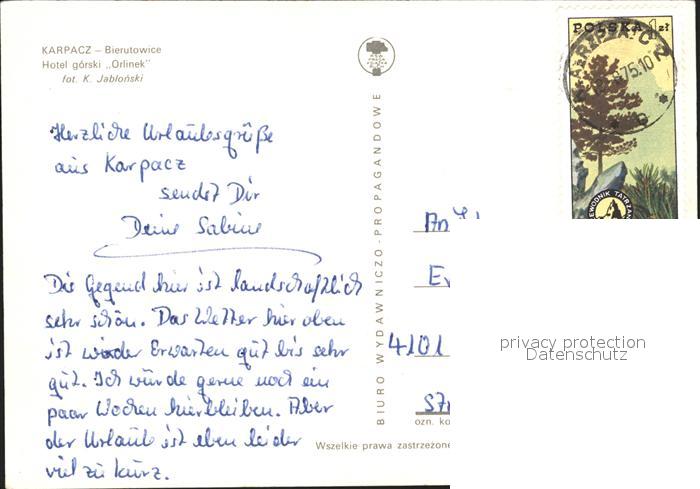 KARPACZ – Bierutowice
Hotel górski „Orlinek"
fot. K. Jabłoński
Herzliche Urlaubsgrüße
aus Karpacz
sendet Dir
Deine Sabine
Die Gegend hier ist landschaftlich
sehr schön. Das Wetter hier oben
ist wieder Erwarten gut bis sehr
gut. Ich würde gerne noch ein
paar Wochen hierbleiben. Aber
der Urlaub ist eben leider
viel zu kurz.
BIURO WYDAWNICZO-PROPAGANDOWE
POLSKA 1 zł
KARPACZ 2
75.10
EWODNIK TATRZA
An
4101
ozn. ko
Wszelkie prawa zastrzeżone
privacy protection
Datenschutz